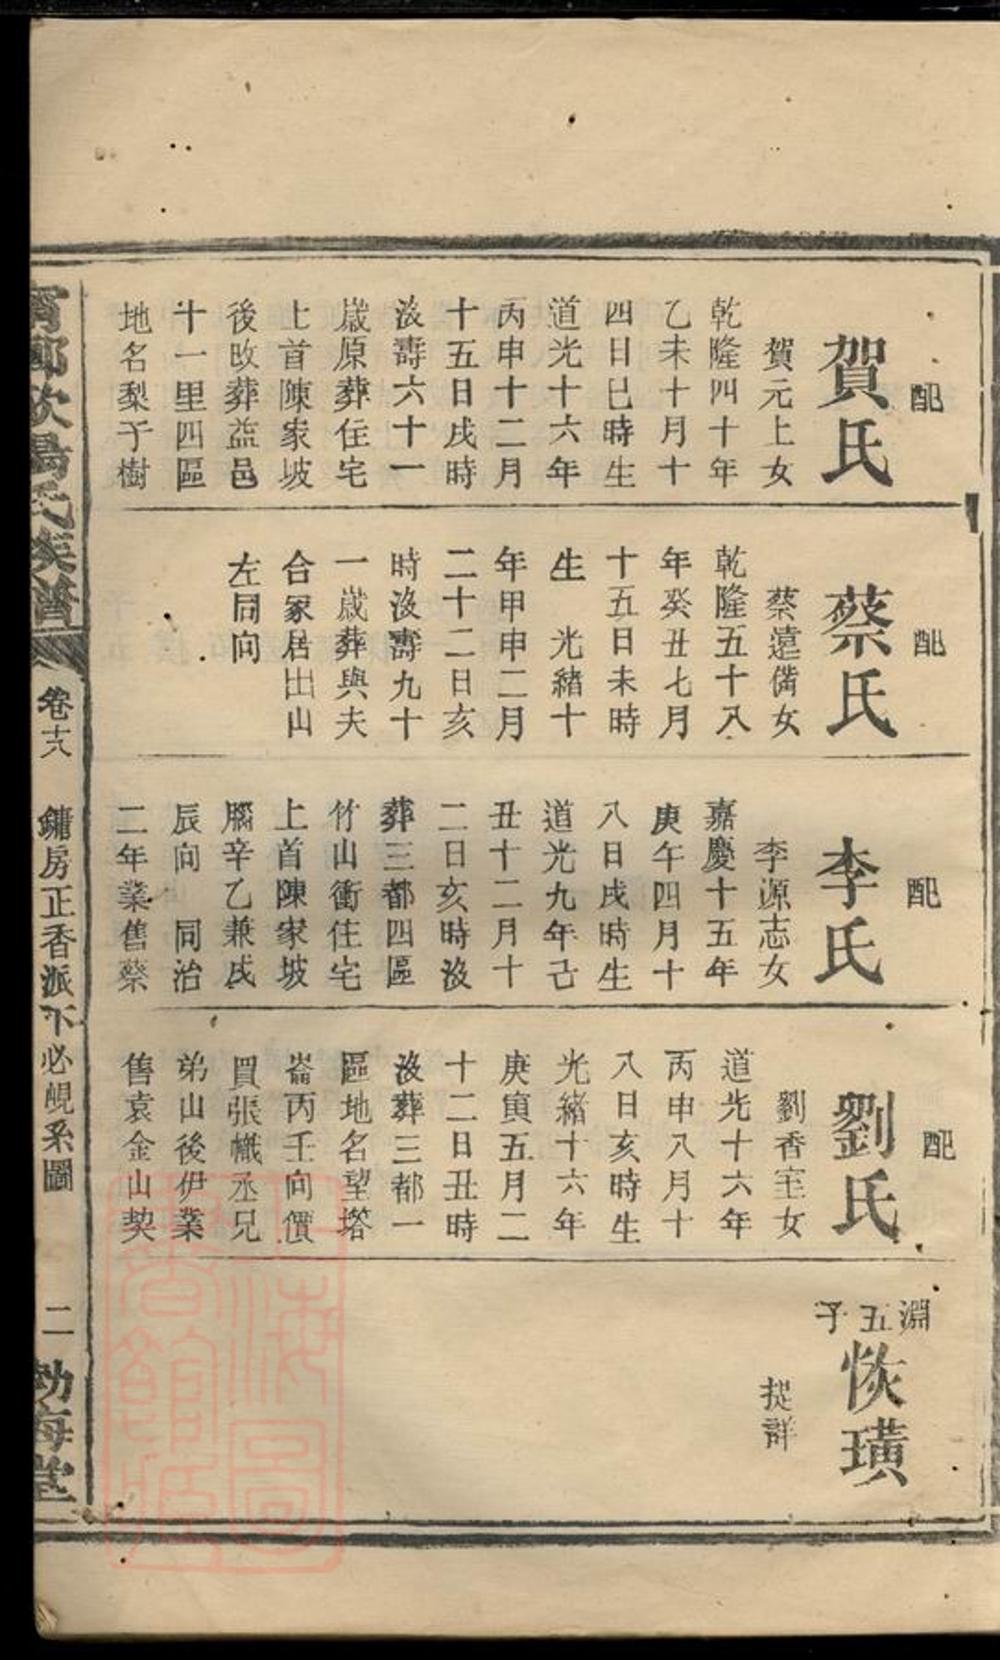 配
賀氏
賀元上女
乾隆四十年
乙未十月十
四日巳時生
道光十六年
丙申十二月
十五日戌時
没壽六十一
歲原葬住宅
上首陳家坡
後改葬益邑
十一里四區
地名梨子樹
配
蔡氏
蔡遠備女
乾隆五十八
年癸丑七月
十五日未時
生 光緒十
年甲申二月
二十二日亥
時没壽九十
一歲葬與夫
合冢居出山
左同向
配
李氏
李源志女
嘉慶十五年
庚午四月十
八日戌時生
道光九年己
丑十二月十
二日亥時没
葬三都四區
竹山衝住宅
上首陳家坡
腦辛乙兼戌
辰向 同治
二年業售蔡
配
劉氏
劉香室女
道光十六年
丙申八月十
八日亥時生
光緒十六年
庚寅五月二
十二日丑時
没葬三都一
區地名望塔
崙丙壬向價
買張幟丞兄
弟山後伊業
售袁金山契
淵五子
恢璜
提詳
氏族譜
卷十八
鏞房正香派下必峴系圖
二
海堂